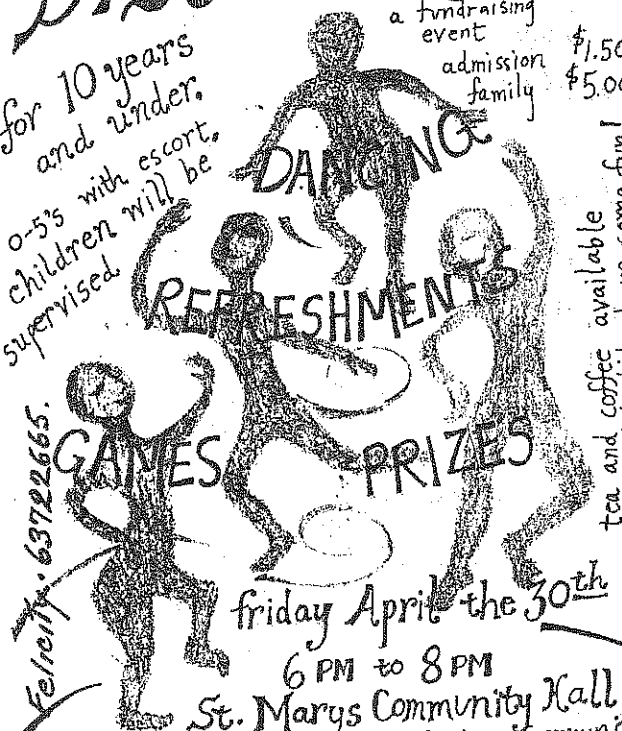 a fundraising
event
admission $1.50
family $5.00
for 10 years
and under.
0-5's with escort.
children will be
supervised
DANCING
REFRESHMENTS
GAMES PRIZES
tea and coffee available
Felicity. 63722665.
friday April the 30th
6 PM to 8 PM
St. Marys Community Hall